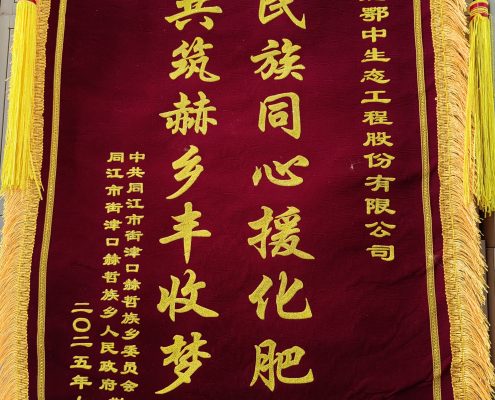 鄂中生态工程股份有限公司
民族同心援化肥
共筑赫乡丰收梦
中共同江市街津口赫哲族乡委员会
同江市街津口赫哲族乡人民政府
二〇二五年